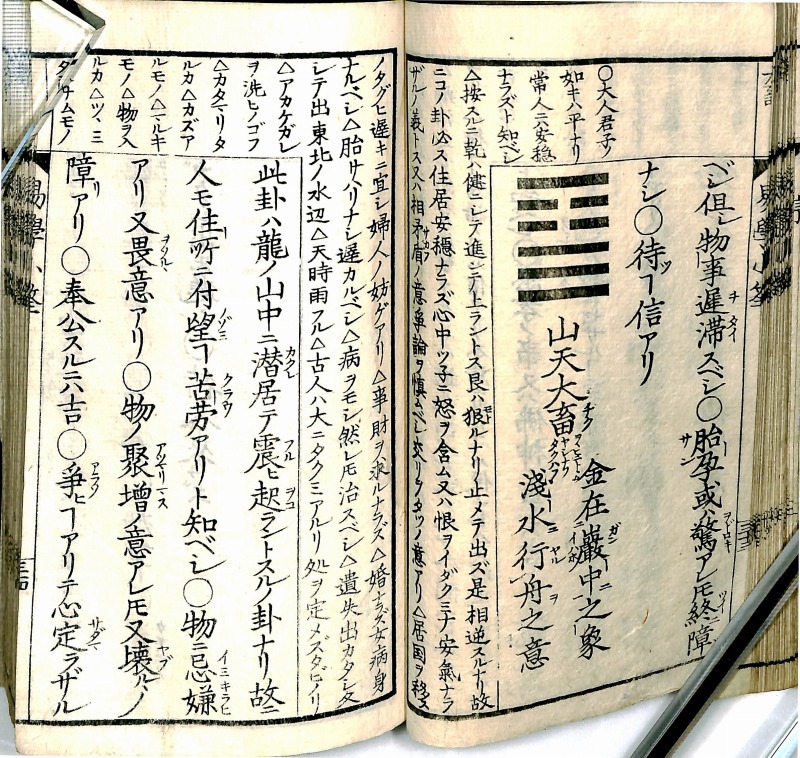 ベシ但シ物事遅滞スベシ〇胎孕或ハ驚アレ𪜈終障
ナシ〇待ヿ信アリ
〇大人君子ノ
如キハ平ナリ
常人ニハ安穏
ナラズト知ベシ
山天大畜
金在巖中之象
淺水行舟之意
△按スルニ乾ハ健ニシテ進ンテ上ラントス艮ハ狠ルナリ止メテ出ズ是相逆スルナリ故
ニコノ卦必ス住居安穏ナラズ心中ツ子ニ怒ヲ含ム又ハ恨ヲイダクミナ安氣ナラ
ザルノ義トス又ハ相矛盾ノ意爭論ヲ慎ムベシ交リヲタツノ意アリ△居国ヲ移ス
ノタグヒ遅キニ宜シ婦人ノ妨ゲアリ△事財ヲ求ルナラズ△婚ナラズ女病身
ナルベシ△胎サハリナシ遅カルベシ△病ヲモシ然レ𪜈治スベシ△遺失出カタシ又
シテ出東北ノ水辺△天時雨フル△古人ハ大ニタクミアルリ処ヲ定メズタビノリ
△アカケガレ
ヲ洗ヒノゴフ
△カタマリタ
ルカ△カズア
ルモノ△マルキ
モノ△物ヲ入
ルカ△ツヽミ
タヽサムモノ
此卦ハ龍ノ山中ニ潜居テ震ヒ起ラントスルノ卦ナリ故ニ
人モ住所ニ付望ヿ苦労アリト知ベシ〇物ニ忌嫌
アリ又畏意アリ〇物ノ聚增ノ意アレ𪜈又壊ルヽノ
障リアリ〇奉公スルニハ吉〇爭ヒヿアリテ心定ラザル
易學小筌
三十四